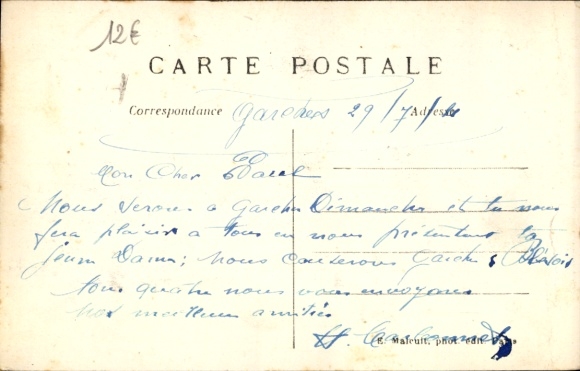 12€
CARTE POSTALE
Correspondance Garches 29/7/ Adresse
Mon Cher Paul
Nous serons à Garches Dimanche et tu nous
fera plaisir à tous en nous présentant ta
jeune Dame; Nous causerons Garches &
tous quatre nous vous envoyons
nos meilleures amitiés
H.
E. Malcuit, phot. édit. Paris